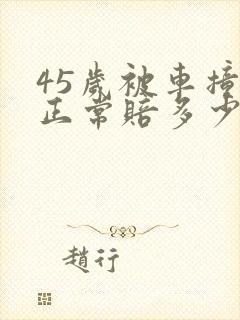 45歲被車撞
正常賠多少
趙行